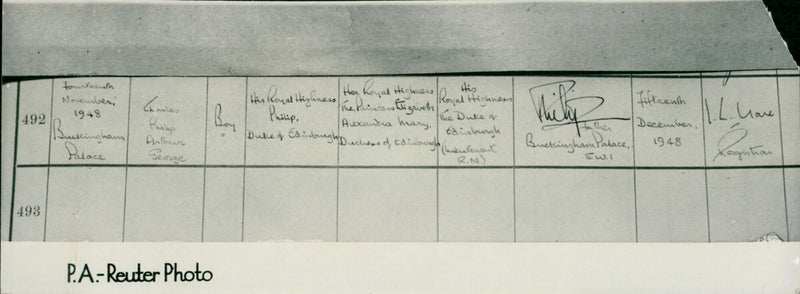 492
Fourteenth
November,
1948
Buckingham
Palace
Charles
Philip
Arthur
George
Boy
His Royal Highness
Philip,
Duke of Edinburgh
Her Royal Highness
The Princess Elizabeth
Alexandra Mary,
Duchess of Edinburgh
His
Royal Highness
The Duke of
Edinburgh
(Lieutenant,
R.N)
Philip
father
Buckingham Palace,
S.W.1
Fifteenth
December,
1948
Registrar
493
P.A.-Reuter Photo